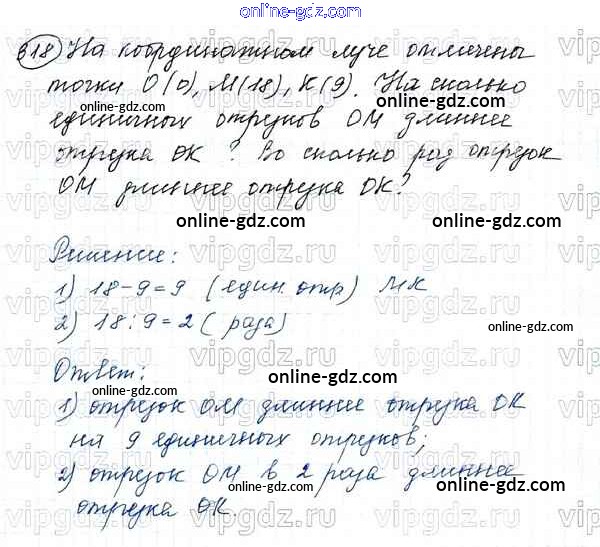 318 На координатном луче отмечены
точки O(0), M(18), K(9). На сколько
единичных отрезков OM длиннее
отрезка OK? Во сколько раз отрезок
OM длиннее отрезка OK?
Решение:
1) 18-9=9 (един. отр) MK
2) 18:9=2 (раза)
Ответ:
1) отрезок OM длиннее отрезка OK
на 9 единичных отрезков;
2) отрезок OM в 2 раза длиннее
отрезка OK.
online-gdz.com
online-gdz.com
online-gdz.com
online-gdz.com
online-gdz.com
online-gdz.com
online-gdz.com
online-gdz.com
online-gdz.com
online-gdz.com
vipgdz.ru